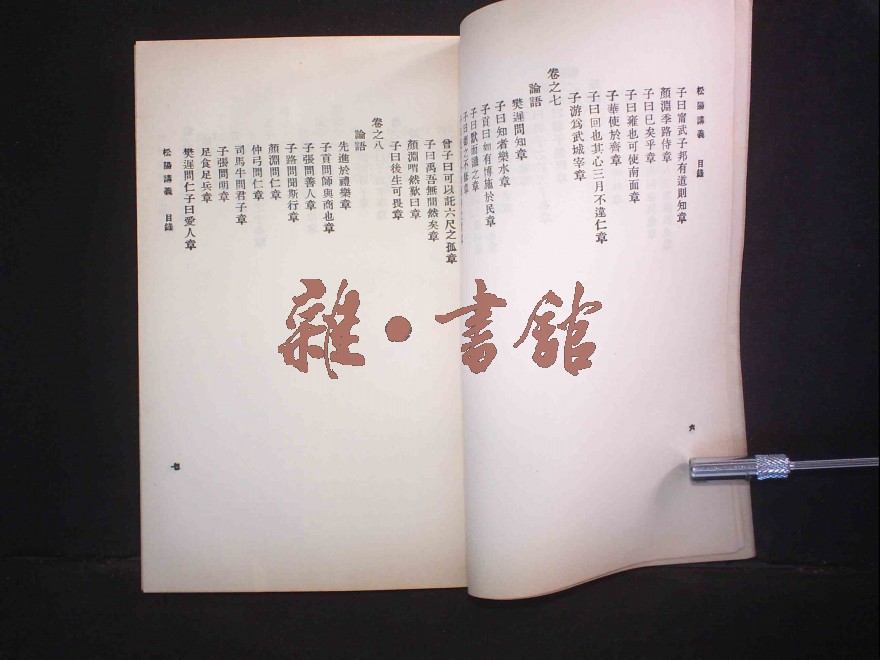 松陽講義 目錄
子曰甯武子邦有道則知章
顏淵季路侍章
子曰已矣乎章
子曰雍也可使南面章
子華使於齊章
子曰回也其心三月不違仁章
子游為武城宰章
卷之七
論語
樊遲問知章
子曰知者樂水章
子貢曰如有博施於民章
子曰默而識之章
子曰德之不修章
六
曾子曰可以託六尺之孤章
子曰禹吾無間然矣章
顏淵喟然歎曰章
子曰後生可畏章
卷之八
論語
先進於禮樂章
子貢問師與商也章
子張問善人章
子路問聞斯行章
顏淵問仁章
仲弓問仁章
司馬牛問君子章
子張問明章
足食足兵章
樊遲問仁子曰愛人章
松陽講義 目錄
七
雜·書館